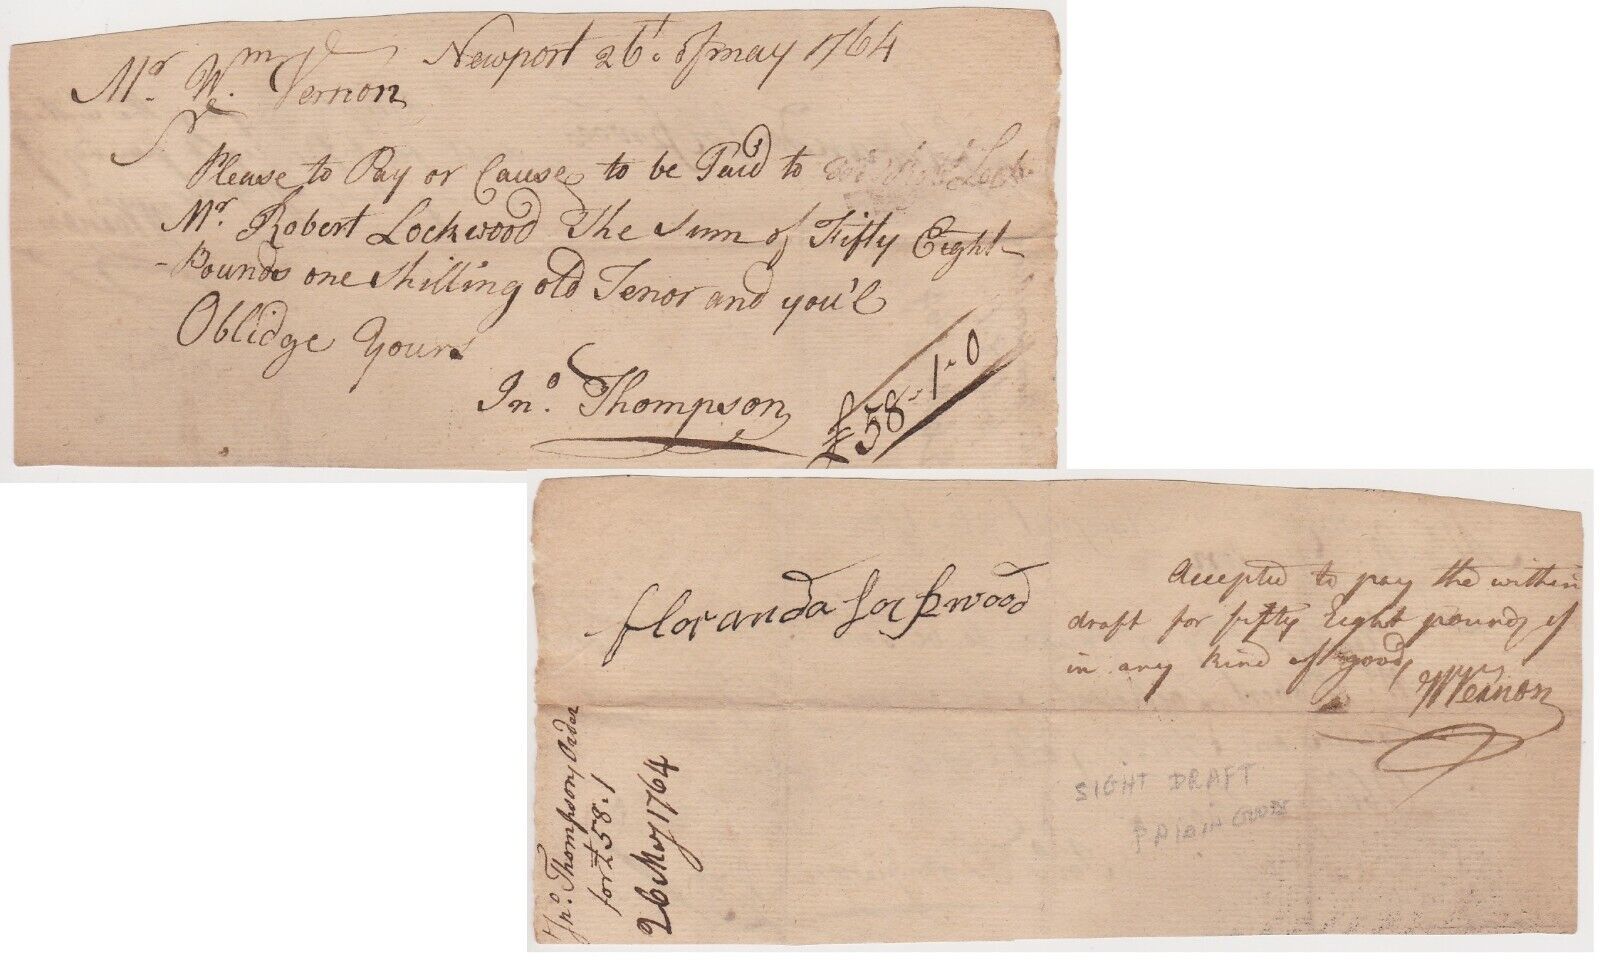 Newport 26t. of may 1764
Mr. Wm. Vernon
Sr
Please to Pay or Cause to be Paid to
Mr. Robert Lockwood The Sum of Fifty Eight
Pounds one Shilling old Tenor and you'l
Oblidge Yours
Jno. Thompson
£58-1-0
floranda Lockwood
Accepted to pay the within
draft for fifty Eight pounds
in any kind of goods
WVernon
Jno. Thompsons Order
for £58.1
26 May 1764
SIGHT DRAFT
PAID IN GOODS